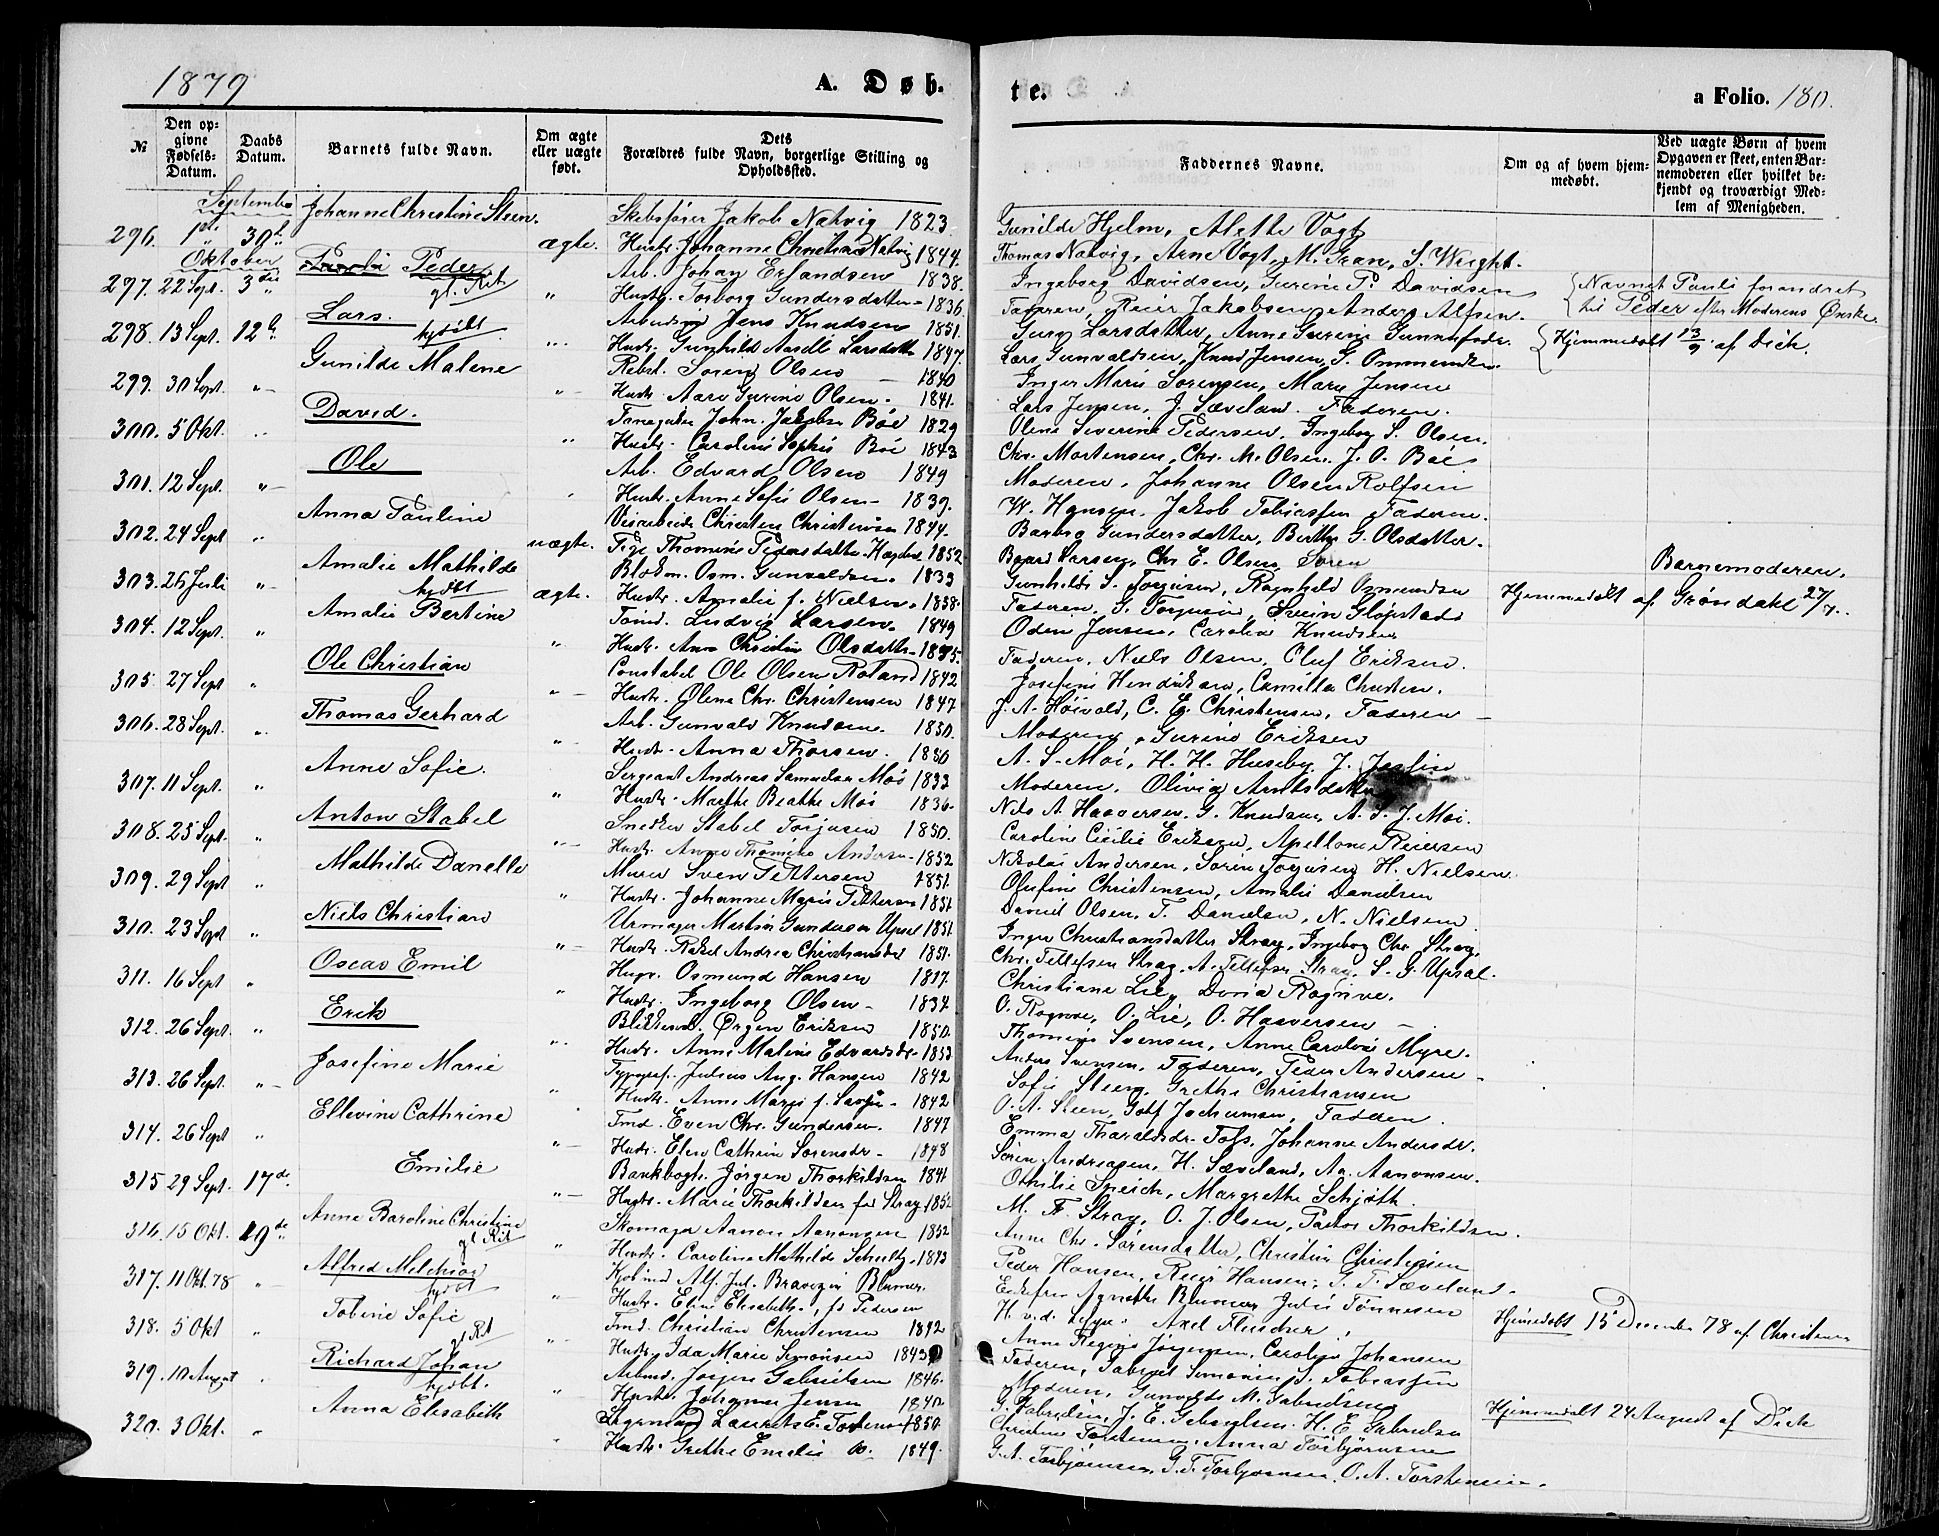 1879
A. Døb-
te.
a Folio. 180.
№
Den opgivne Fødsels-Datum.
Daabs Datum.
Barnets fulde Navn.
Om ægte eller uægte født.
Dets Forældres fulde Navn, borgerlige Stilling og Opholdssted.
Faddernes Navne.
Om og af hvem hjemmedøbt.
Ved uægte Børn af hvem Opgaven er skeet, enten Barnemoderen eller hvilket bekjendt og troværdigt Medlem af Menigheden.
September
Johanne Christine Steen.
Skibsfører Jakob Natvig 1823
Gunilde Hjelm, Alette Vogt
296. 30
ægte.
Hustr. Johanne Christiane Natvig 1844.
Thomas Natvig, Arne Vogt, M. Gran, S. Wright.
Oktober
Peder
gl. Rit
Arb. Johan Erlandsen 1838.
Ingeborg Davidsen, Gurine P. Davidsen
Navnet Pauli forandret
297. 22 Sept. 3die
Hustr. Torborg Gundersdatter 1836.
Faderen, Reier Jakobsen Anders Alfsen.
til Peder efter Moderens Ønske.
Lars.
hjdøbt
Arbeidsmd Jens Knudsen 1851.
Guro Larsdatter, Anne Gurine
298. 13 Sept. 12
Hustr. Gunhild Aasell Larsdatter 1847.
Lars Gunvaldsen, Knud Jensen, G. Ommundsen.
Hjemmedøbt 13/9 af Dick.
Gunilde Malene
Rebsl. Søren Olsen 1840
Inger Marie Sørensen, Mary Jensen
299. 30 Sept.
Hustr. Aase Gurine Olsen. 1841.
Lars Jensen, J. Sæveland. Faderen.
David.
John. Jakobsen Böe 1829
Oline Severine Pedersen, Ingeborg S. Olsen.
300. 5 Okt.
Hustr. Caroline Sophie Böe 1843
Chr. Mortensen, Chr. M. Olsen, J. O. Böe
Ole
Arb. Edvard Olsen 1849
Moderen, Johanne Olsen Rolfsen
301. 12 Sept.
Hustr. Anne Sofie Olsen 1839.
W. Hansen, Jakob Tobiassen Faderen.
Anna Pauline
Christen Christensen 1844.
Barbro Gundersdatter, Berthe G. Olsdatter.
302. 24 Sept
uægte.
Pige Thomine Pedersdatter 1852
Baard Larsen, Chr. E. Olsen, Søren
Barnemoderen.
Amalie Mathilde
hjdøbt
Blokm. Osm. Gunvaldsen. 1833
Gunhilde S. Torjusen, Ragnhild Osmundsen
303. 26 Juli
ægte.
Hustr. Amalie f. Nielsen. 1838.
Faderen, S. Torjusen, Svein Gløpstad
Hjemmedøbt af Grøndahl 27/7.
Amalie Bertine
Tømd. Ludvig Larsen. 1849
Odin Jensen, Carolia Knudsen
304. 12 Sept.
Hustr. Ane Christin Olsdatter
Faderen, Niels Olsen, Oluf Eriksen.
Ole Christian
Constabel Ole Olsen Røtand 1842
Josefine Hendriksen, Camilla Christen.
305. 27 Sept
Hustr. Oline Chr. Christensen 1847
J. A. Höivold, C. Eg. Christensen, Faderen
Thomas Gerhard
Arb. Gunvald Knudsen. 1850.
Moderen, Gurine Eriksen
306. 28 Sept.
Hustr. Anna Thorsen. 1850
A. S. Moi, H. H. Huseby, J. Josefsen
Anne Sofie.
Sergeant Andreas Samuelsen Moi 1833
Moderen. Olivia Arntsdatter
307. 11 Sept.
Hustr. Marthe Beathe Moi 1836.
Nils A. Haaversen. G. Knudsen, A. S. J. Moi.
Anton Stabel
Snedker Stabel Torjusen 1850.
Caroline Cicilie Eriksen, Apellone Reiersen
308. 25 Sept.
Hustr. Anne Thomine Andersen 1852
Nikolai Andersen, Søren Torjusen H. Nielsen.
Mathilde Danelle
Murer Sven Pettersen 1851.
Olufine Christensen, Amalie Danielsen
309. 29 Sept
Hustr. Johanne Marie Pettersen 1851
Daniel Olsen, T. Danielsen, N. Nielsen
Niels Christian
Urmager Martin Gundersen Upsal 1851.
Inger Christiansdatter Stray, Ingeborg Chr. Stray.
310. 23 Sept
Hustr. Rakel Andrea Christiansdtr 1851.
Chr. Tellefsen Stray, A. Tellefsen Stray, S. G. Upsal.
Oscar Emil
Osmund Hansen 1817.
Christiane Lie, Doria Rognve.
311. 16 Sept
Hustr. Ingeborg Olsen 1834
O. Rognve, O. Lie, O. Haaversen
Erik
Ørgen Eriksen 1850.
Thomine Svensen, Anne Caroline Myre.
312. 26 Sept.
Hustr. Anne Maline Edvardsdr. 1853
Anders Svensen, Faderen, Peder Andersen
Josefine Marie
Typogrf. Julius Aug. Hansen 1842
Sofie Steen, Grethe Christiansen
313. 26 Sept.
Hustr. Anne Marie f. 1842
O. A. Steen, Jochumsen, Faderen
Ellevine Cathrine
Tmd. Even Chr. Gundersen. 1847
Emma Tharaldsdr. Johanne Andersdr.
314. 26 Sept
Hustr. Elen Cathrin Sørensdr. 1848
Søren Andreasen, H. Sæveland, Aa. Aanonsen.
Emilie
Bankbogh. Jörgen Thorkildsen 1841
Othilie Speich, Margrethe Schjøth
315 29 Sept. 17de.
Hustr. Marie Thorkildsen fød Stray 1852
M. F. Stray, O. J. Olsen, Pastor Thorkildsen.
Anne Baroline Christine
gl. Rit
Skomager Aanon Aanonsen 1852
Anne Chr. Sørensdatter, Christine Christensen
316. 15 Okt. 19de.
Hustr. Carolina Mathilde Schultz 1843
Peder Hansen, Reier Hansen, G. T. Sæveland.
Alfred Melchior
hjdøbt
Kjøbmd Alf. Jul. Blumer.
Enkefru Agnethe Blumer, Julie Tønnesen
317. 11 Okt 78
Hustr. Eline Elisabeth, fd Pedersen
H. v. d. Lippe. Axel Fleischer.
Hjemedøbt 15 December 78 af Christensen
Tobine Sofie
gl Rit
Tmd. Christian Christensen 1842
Anne Regine Jørgensen, Caroline Johansen
318. 5 Okt
Hustr. Ida Marie Simonsen 1843
Faderen, Gabriel Simonsen, S. Tobiassen
Richard Johan
hjdøbt.
Arbmd. Jørgen Gabrielsen 1846.
Moderen, Gunvolde M. Gabrielsen
319. 10 August
Hustr. Johanne Jensen 1840
G. Gabrielsen, J. E. Gabrielsen. H. E. Gabrielsen
Hjemmedøbt 24 August af Dick
Anna Elisabeth
Laurits E. Torstensen 1850
Christine Torstensen, Anna Torbjørnsen
320. 3 Okt.
Hustr. Grethe Emelie do. 1849.
G. A. Torbjørnsen, G. T. Torbjørnsen, O. A. Torstensen.